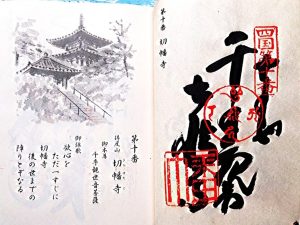 第十番 切幡寺
四国第十番
千手観音
切幡寺
第十番
得度山 切幡寺
御本尊
千手観世音菩薩
御詠歌
欲心を
ただ一すじに
切幡寺
後の世までの
障りとぞなる